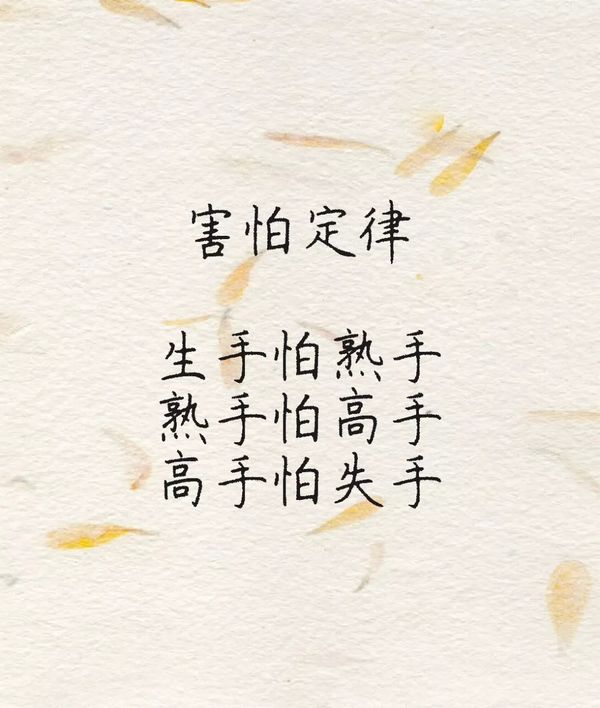 害怕定律
生手怕熟手
熟手怕高手
高手怕失手